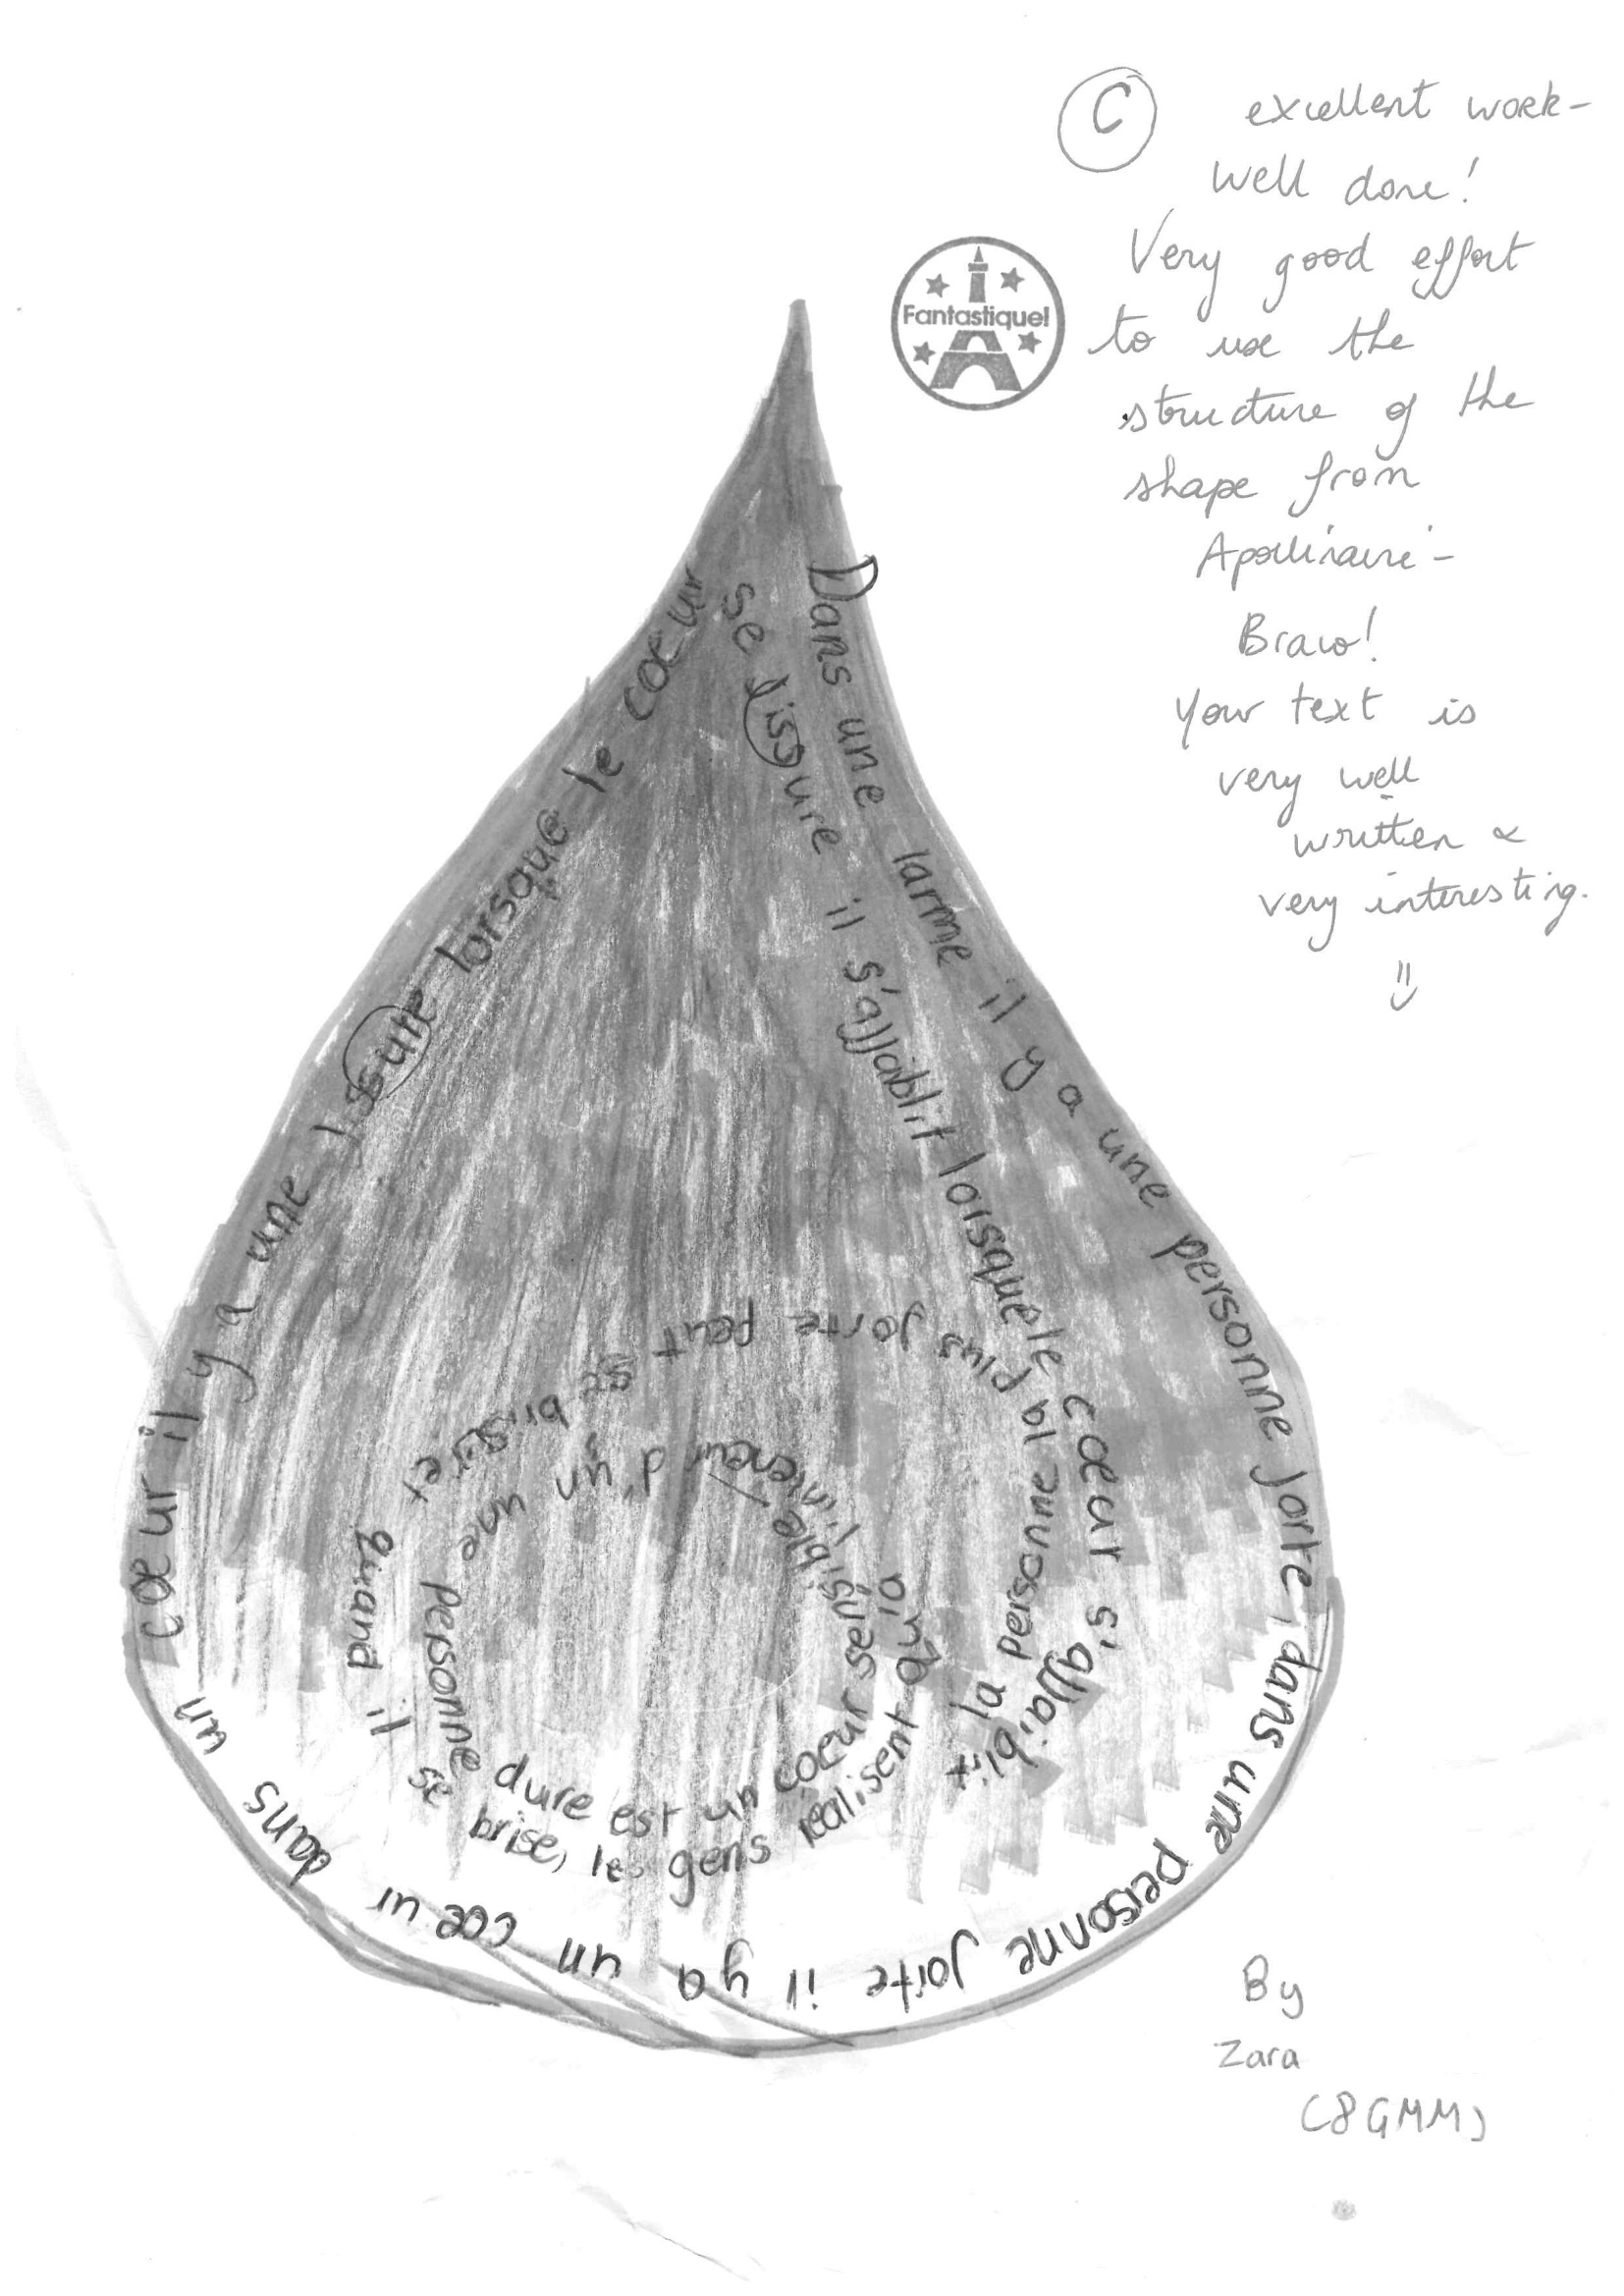 C
excellent work -
well done!
Very good effort
to use the
structure of the
shape from
Apollinaire -
Bravo!
Your text is
very well
written &
very interesting.
Fantastique!
Dans une larme il y a une personne forte, dans une personne forte il y a un coeur dans un coeur il y a une fissure lorsque le coeur se fissure il s'affaiblit lorsque le coeur s'affaiblit la personne la plus forte peut se briser quand il se brise, les gens réalisent qu'à l'interieur d'un une personne dure est un coeur sensible
By
Zara
(8GMM)